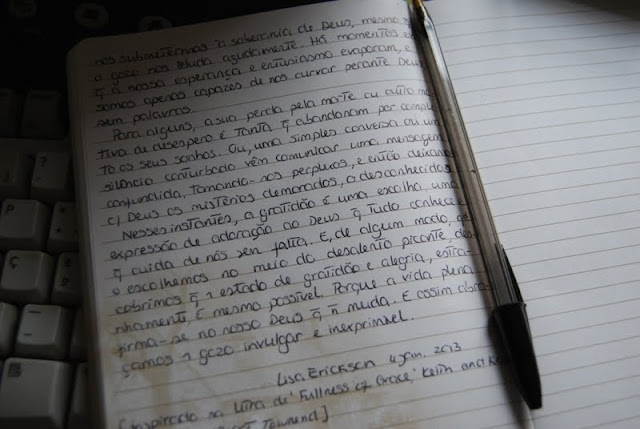 nos submetermos à soberania de Deus, mesmo
o gozo nos iluda agudamente. Há momentos em
q̃ a nossa esperança e entusiasmo evaporam, e
somos apenas capazes de nos curvar perante Deus
sem palavras.
Para alguns, a sua perda pela morte ou outro mo-
tivo de desespero é tanta q̃ abandonam por comple-
to os seus sonhos. Ou, uma simples conversa ou um
silêncio conturbado vêm comunicar uma mensagem
confundida, tornando-nos perplexos, e então deixando
c/ Deus os mistérios demorados, o desconhecido.
Nesses instantes, a gratidão é uma escolha, uma
expressão de adoração ao Deus q̃ tudo conhece e
q̃ cuida de nós sem falta. E, de algum modo, qdo
o escolhemos no meio do desalento picante, des-
cobrimos q̃ 1 estado de gratidão e alegria, estra-
nhamente, é mesmo possível. Porque a vida plena
firma-se no nosso Deus q̃ ñ muda. E assim abra-
çamos 1 gozo invulgar e inexprimível.
Lisa Erickson 4 jan. 2013
[Inspirado na letra de 'Fullness of Grace,' Keith and
Townend]
P
Ç